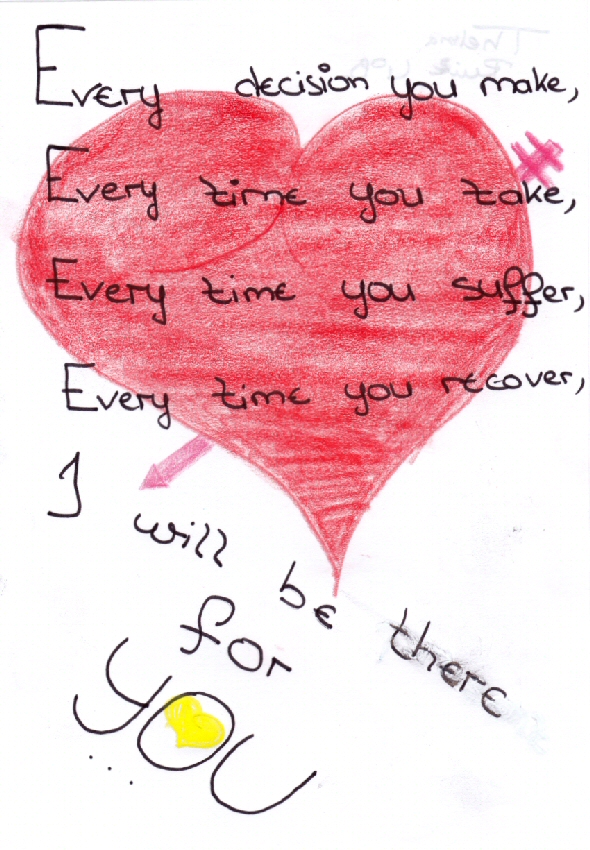 Every decision you make,
Every time you take,
Every time you suffer,
Every time you recover,
I will be there
for
YOU
...